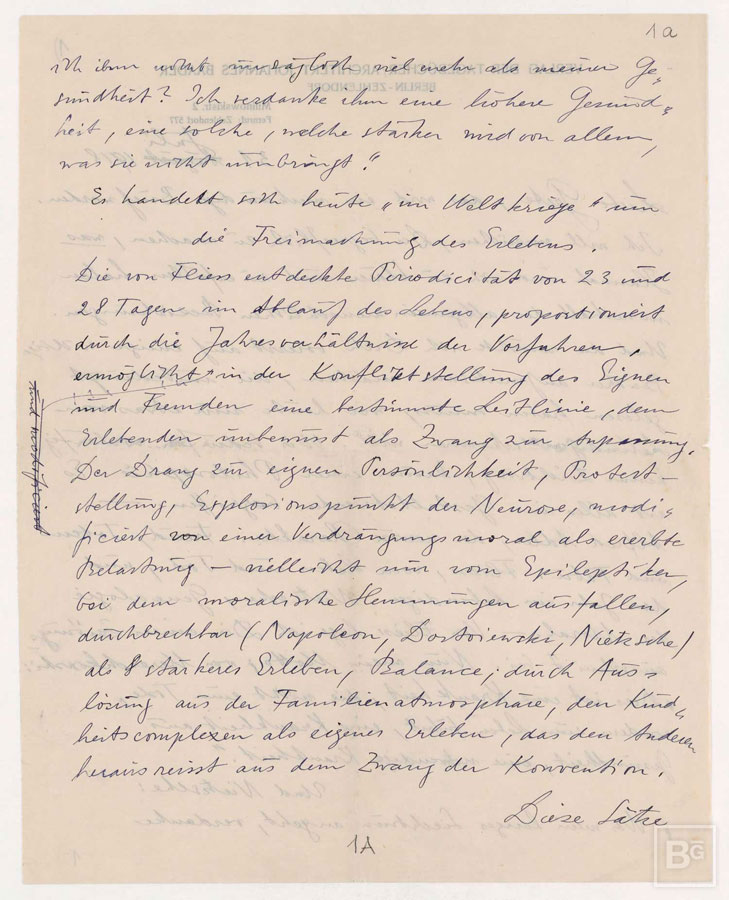 1a
ich ihm nicht unsäglich viel mehr als meiner Ge„
sundheit? Ich verdanke ihm eine höhere Gesund„
heit, eine solche, welche stärker wird von allem,
was sie nicht umbringt."
Es handelt sich heute „im Weltkriege" um
die Freimachung des Erlebens.
Die von Fliess entdeckte Periodicität von 23 und
28 Tagen im Ablauf des Lebens, proportioniert
durch die Jahresverhältnisse der Vorfahren,
ermöglicht in der Konfliktstellung des Eignen
und Fremden eine bestimmte Leitlinie, dem
Erlebenden unbewusst als Zwang zur Anpassung.
Der Drang zur eignen Persönlichkeit, Protest–
stellung, Explosionspunkt der Neurose, modi„
ficiert von einer Verdrängungsmoral als ererbte
Belastung – vielleicht nur vom Epileptiker,
bei dem moralische Hemmungen ausfallen,
durchbrechbar (Napoleon, Dostojewski, Nietzsche)
als stärkeres Erleben, Balance; durch Aus„
lösung aus der Familienatmosphäre, den Kind„
heitscomplexen als eigenes Erleben, das den Anderen
herausreisst aus dem Zwang der Konvention.
Diese Sätze
1A
BG